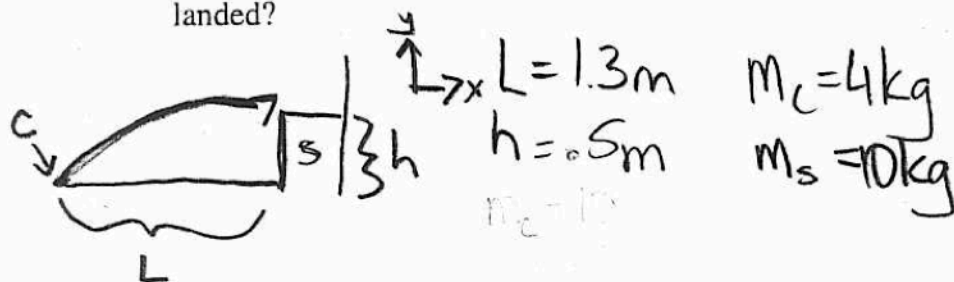 landed?
y
x L = 1.3m m_c = 4kg
C s } h h = .5m m_s = 10kg
L